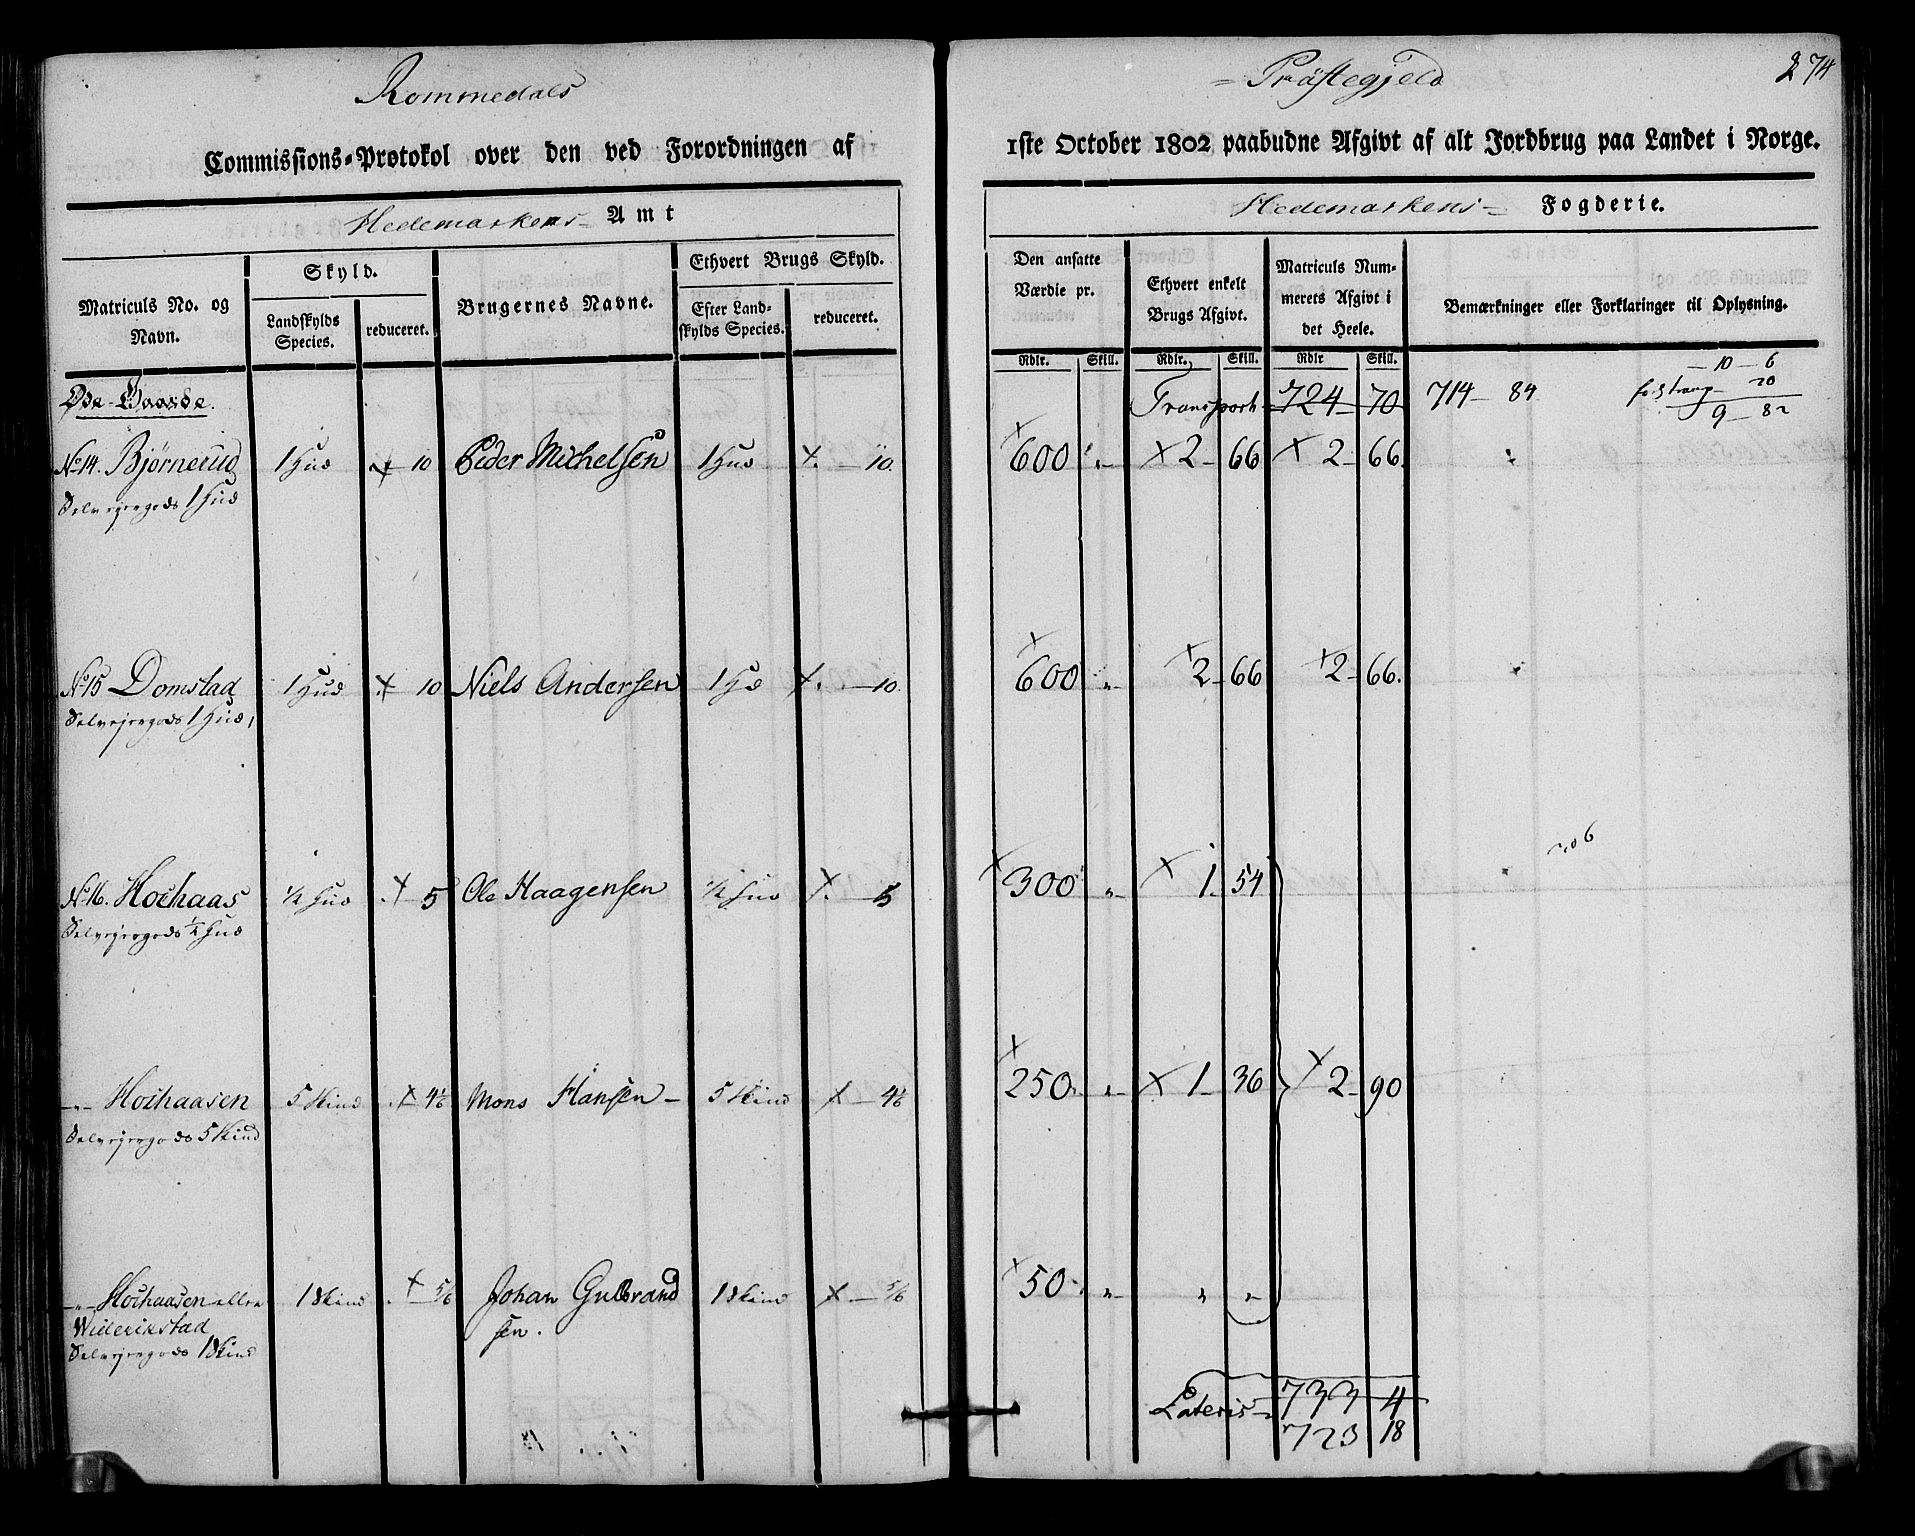 Rommedals
= Præstegjeld
274
Commissions-Protokol over den ved Forordningen af
1ste October 1802 paabudne Afgivt af alt Jordbrug paa Landet i Norge.
Hedemarkens- Amt
Hedemarkens- Fogderie.
Matriculs No. og Navn.
Skyld.
Landskylds Species.
reduceret.
Brugernes Navne.
Ethvert Brugs Skyld.
Efter Landskylds Species.
reduceret.
Den ansatte Værdie pr.
Ethvert enkelt Brugs Afgivt.
Matriculs Nummerets Afgivt i det Heele.
Bemærkninger eller Forklaringer til Oplysning.
Rdlr. Skill. Rdlr. Skill. Rdlr Skill.
Øde-Gaarde.
Transport 724 - 70 714 - 84
- 10 - 6
20
9 - 82
No 14. Bjørnerud 1 Hud x 10 Peder Michelsen 1 Hud x. - 10. x 600 „ x 2 - 66 x 2 - 66.
Selvejergods 1 Hud
No 15 Domstad 1 Hud x 10 Niels Andersen 1 Hd x. - 10. x 600 „ x 2 - 66 x 2 - 66.
Selvejergods 1 Hud,
No 16. Hochaas ½ Hud x 5 Ole Haagensen ½ Hud x. - 5 x 300 „ x 1. 54
Selvejergods ½ Hud
206
-„- Hochaasen 5 Skind x 4⅙ Mons Hansen - 5 Skind x - 4⅙ x 250. „ x 1 - 36 x 2 - 90
Selvejergods 5 Skind
-„- Hochaasen eller 1 Skind x - 5/6 Johan Gulbrand 1 Skind x - 5/6 x 50. „ „ „
Widerikstad sen.
Selvejergods 1 Skind
Lateris - 733 4
723 18